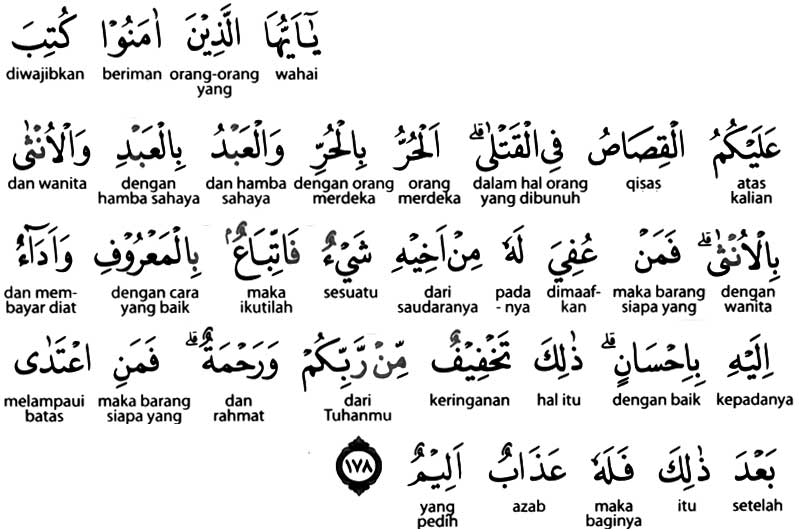 يٰٓاَيُّهَا الَّذِيْنَ اٰمَنُوْا كُتِبَ
wahai orang-orang yang beriman diwajibkan
عَلَيْكُمُ الْقِصَاصُ فِى الْقَتْلٰىۗ اَلْحُرُّ بِالْحُرِّ وَالْعَبْدُ بِالْعَبْدِ وَالْاُنْثٰى
atas kalian qisas dalam hal orang yang dibunuh orang merdeka dengan orang merdeka dan hamba sahaya dengan hamba sahaya dan wanita
بِالْاُنْثٰىۗ فَمَنْ عُفِيَ لَهٗ مِنْ اَخِيْهِ شَيْءٌ فَاتِّبَاعٌۢ بِالْمَعْرُوْفِ وَاَدَاۤءٌ
dengan wanita maka barang siapa yang dimaaf-kan pada-nya dari saudaranya sesuatu maka ikutilah dengan cara yang baik dan mem-bayar diat
اِلَيْهِ بِاِحْسَانٍۗ ذٰلِكَ تَخْفِيْفٌ مِّنْ رَّبِّكُمْ وَرَحْمَةٌۗ فَمَنِ اعْتَدٰى
kepadanya dengan baik hal itu keringanan dari Tuhanmu dan rahmat maka barang siapa yang melampaui batas
بَعْدَ ذٰلِكَ فَلَهٗ عَذَابٌ اَلِيْمٌ ١٧٨
setelah itu maka baginya azab yang pedih